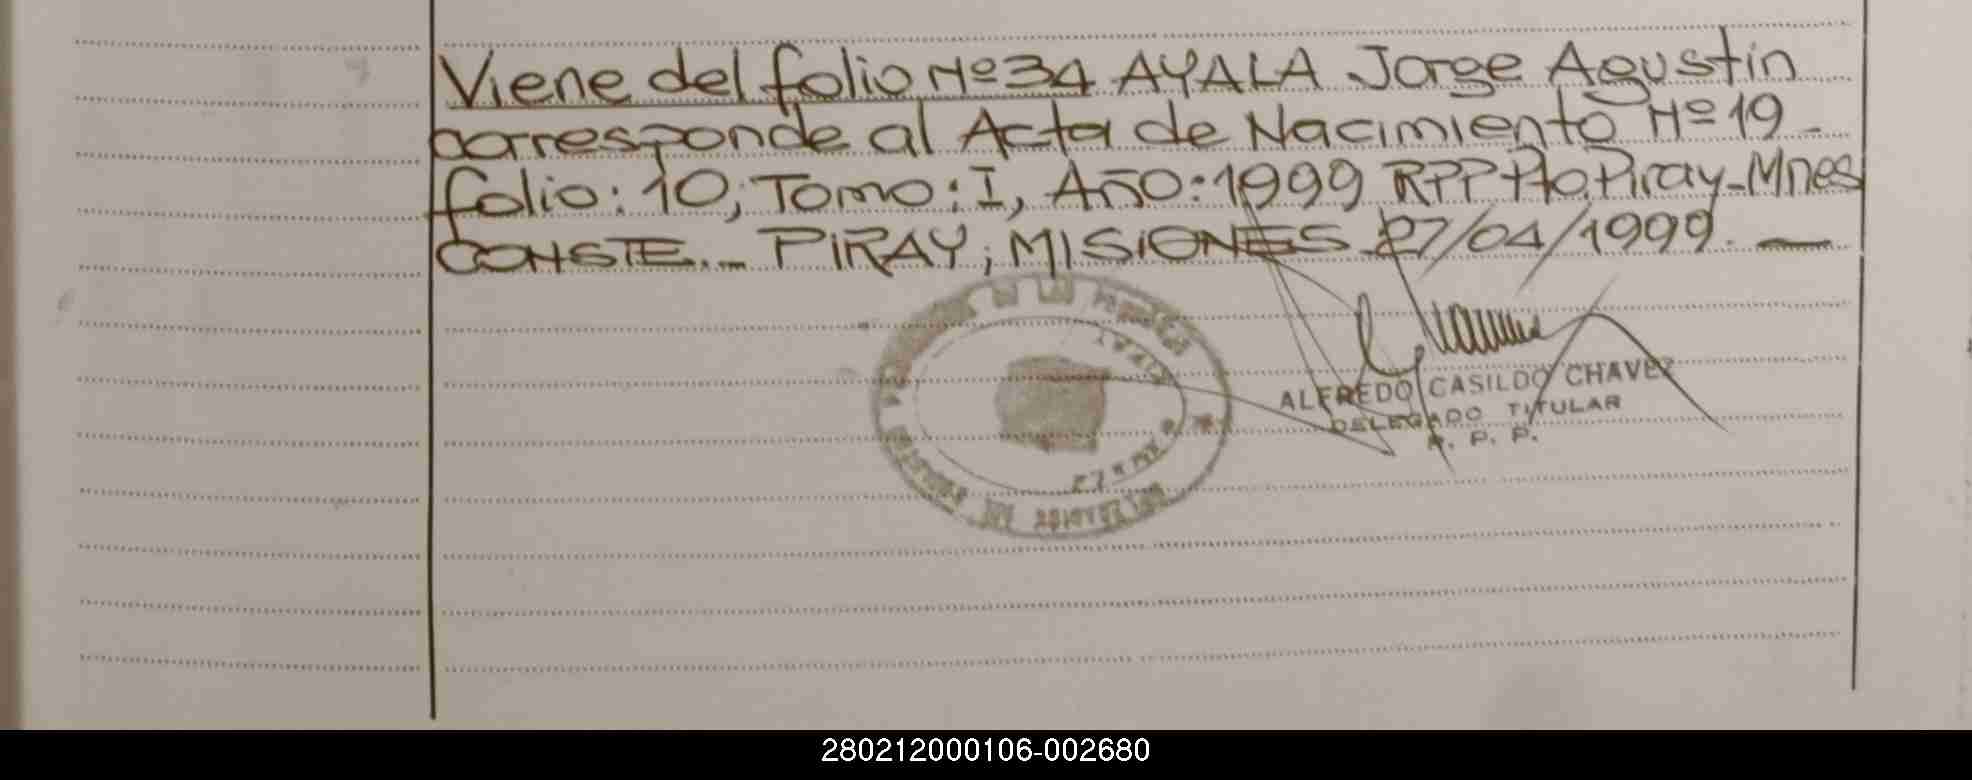 Viene del folio Nº 34 AYALA Jorge Agustin
corresponde al Acta de Nacimiento Nº 19 -
folio: 10; Tomo: I, Año: 1999 RPP Pto. Piray - Mnes
CONSTE.- PIRAY; MISIONES 27/04/1999. —
ALFREDO CASILDO CHAVEZ
DELEGADO TITULAR
R. P. P.
280212000106-002680